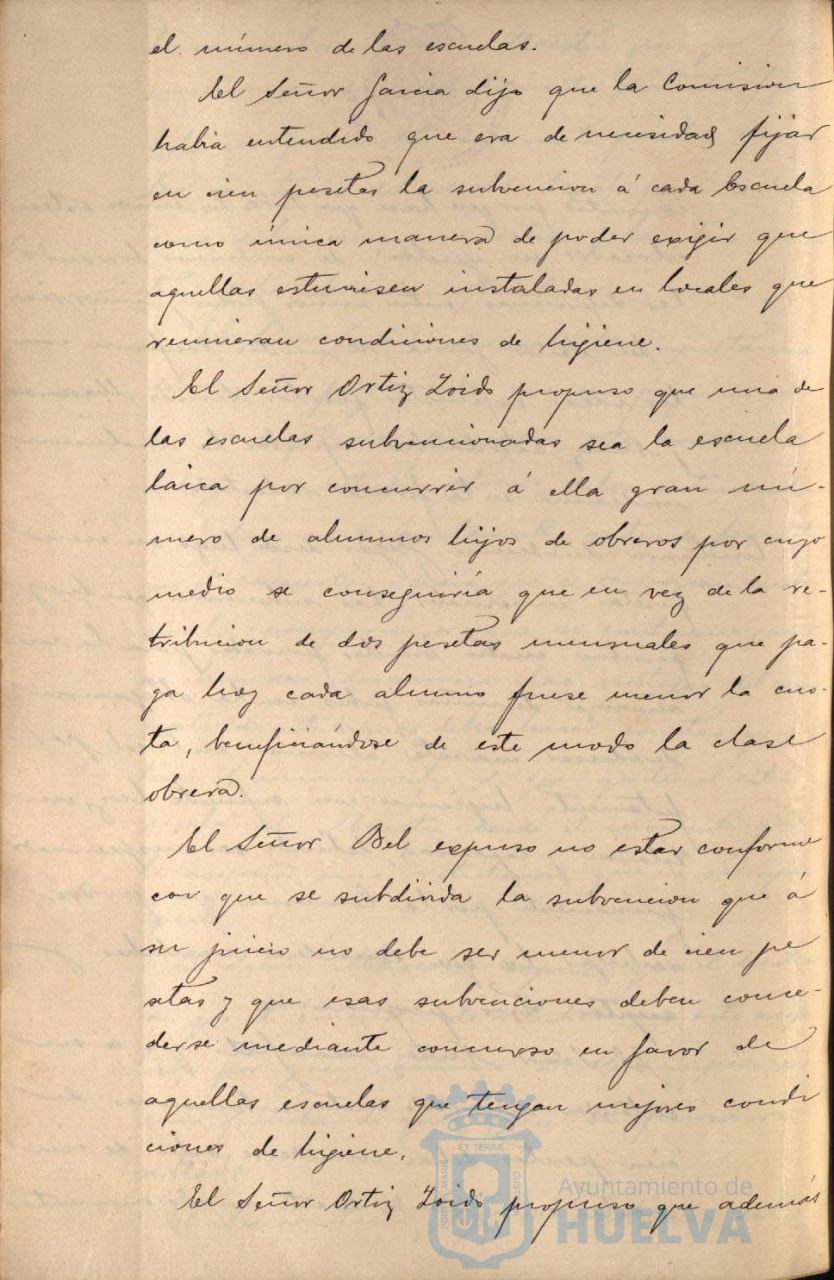 el número de las escuelas.
El Señor Garcia dijo que la Comision
habia entendido que era de necesidad fijar
en cien pesetas la subvencion á cada Escuela
como única manera de poder exigir que
aquellas estuviesen instaladas en locales que
reunieran condiciones de higiene.
El Señor Ortiz Zoido propuso que una de
las escuelas subvencionadas sea la escuela
laica por concurrir á ella gran nú-
mero de alumnos hijos de obreros por cuyo
medio se conseguiría que en vez de la re-
tribucion de dos pesetas mensuales que pa-
ga hoy cada alumno fuese menor la cuo-
ta, beneficiándose de este modo la clase
obrera.
El Señor Bel expuso no estar conforme
con que se subdivida la subvencion que á
su juicio no debe ser menor de cien pe
setas y que esas subvenciones deben conce-
derse mediante concurso en favor de
aquellas escuelas que tengan mejores condi
ciones de higiene.
El Señor Ortiz Zoido propuso que además
Ayuntamiento de
HUELVA